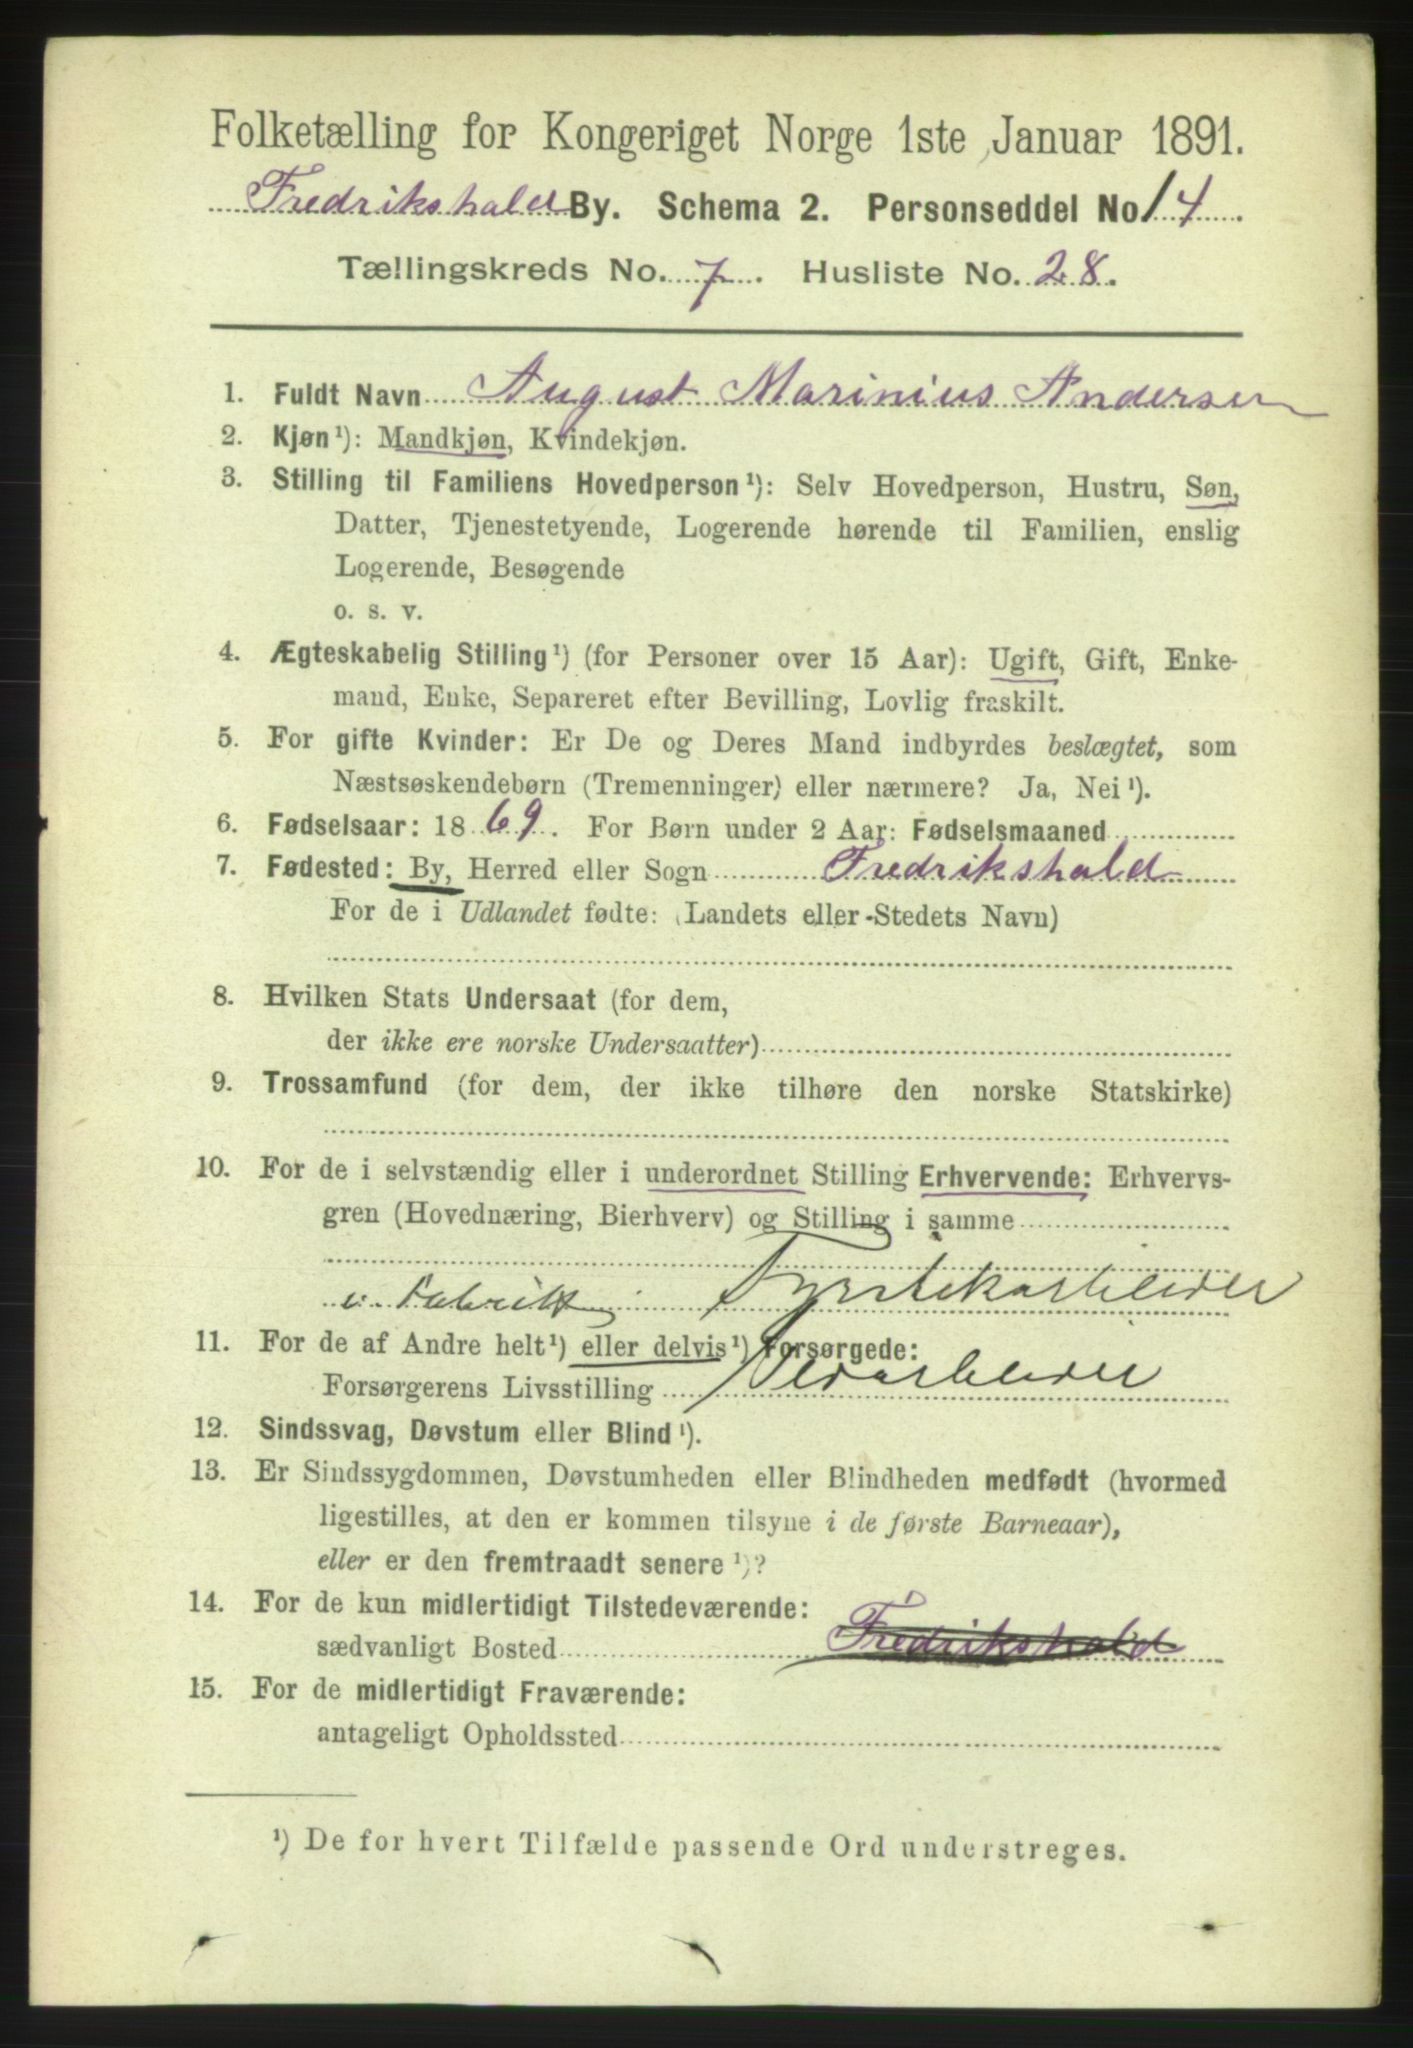 Folketælling for Kongeriget Norge 1ste Januar 1891.
Fredrikshald By. Schema 2. Personseddel No 14.
Tællingskreds No. 7. Husliste No. 28.
1. Fuldt Navn August Marinius Andersen
2. Kjøn¹): Mandkjøn, Kvindekjøn.
3. Stilling til Familiens Hovedperson¹): Selv Hovedperson, Hustru, Søn,
Datter, Tjenestetyende, Logerende hørende til Familien, enslig
Logerende, Besøgende
o. s. v.
4. Ægteskabelig Stilling¹) (for Personer over 15 Aar): Ugift, Gift, Enke-
mand, Enke, Separeret efter Bevilling, Lovlig fraskilt.
5. For gifte Kvinder: Er De og Deres Mand indbyrdes beslægtet, som
Næstsøskendebørn (Tremenninger) eller nærmere? Ja, Nei¹).
6. Fødselsaar: 1869. For Børn under 2 Aar: Fødselsmaaned
7. Fødested: By, Herred eller Sogn Fredrikshald
For de i Udlandet fødte: (Landets eller Stedets Navn)
8. Hvilken Stats Undersaat (for dem,
der ikke ere norske Undersaatter)
9. Trossamfund (for dem, der ikke tilhøre den norske Statskirke)
10. For de i selvstændig eller i underordnet Stilling Erhvervende: Erhvervs-
gren (Hovednæring, Bierhverv) og Stilling i samme
v. Fabrik
11. For de af Andre helt¹) eller delvis¹) Forsørgede:
Forsørgerens Livsstilling
12. Sindssvag, Døvstum eller Blind¹).
13. Er Sindssygdommen, Døvstumheden eller Blindheden medfødt (hvormed
ligestilles, at den er kommen tilsyne i de første Barneaar),
eller er den fremtraadt senere¹)?
14. For de kun midlertidigt Tilstedeværende:
sædvanligt Bosted Fredrikshald
15. For de midlertidigt Fraværende:
antageligt Opholdssted
¹) De for hvert Tilfælde passende Ord understreges.